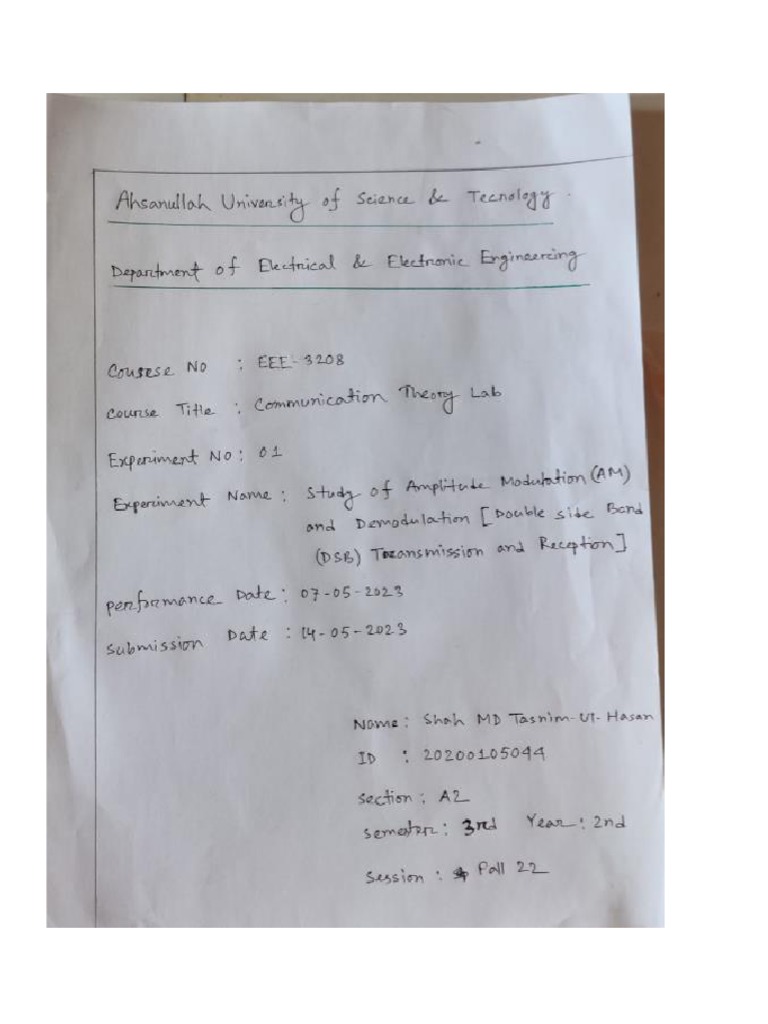 Ahsanullah University of Science & Tecnology.
Department of Electrical & Electronic Engineering
Course No : EEE-3208
Course Title : Communication Theory Lab
Experiment No : 01
Experiment Name : Study of Amplitude Modulation (AM)
and Demodulation [Double side Band
(DSB) Transmission and Reception]
performance Date : 07-05-2023
Submission Date : 14-05-2023
Name : Shah MD Tasnim-Ul-Hasan
ID : 20200105044
Section : A2
semester : 3rd Year : 2nd
Session : Fall 22